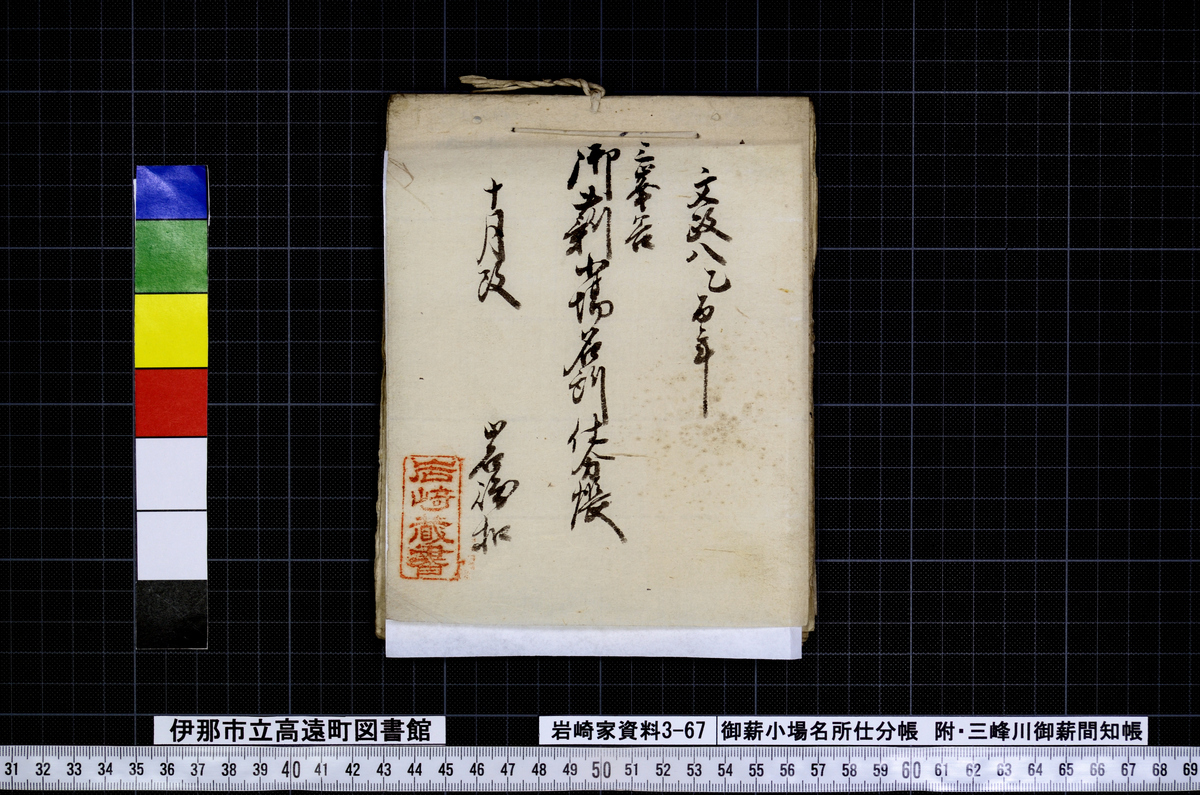 文政八乙酉年
御薪小場名所仕分帳
十月改
扣
岩崎蔵書
伊那市立高遠町図書館
岩崎家資料3-67 御薪小場名所仕分帳 附・三峰川御薪間知帳
31 32 33 34 35 36 37 38 39 40 41 42 43 44 45 46 47 48 49 50 51 52 53 54 55 56 57 58 59 60 61 62 63 64 65 66 67 68 69